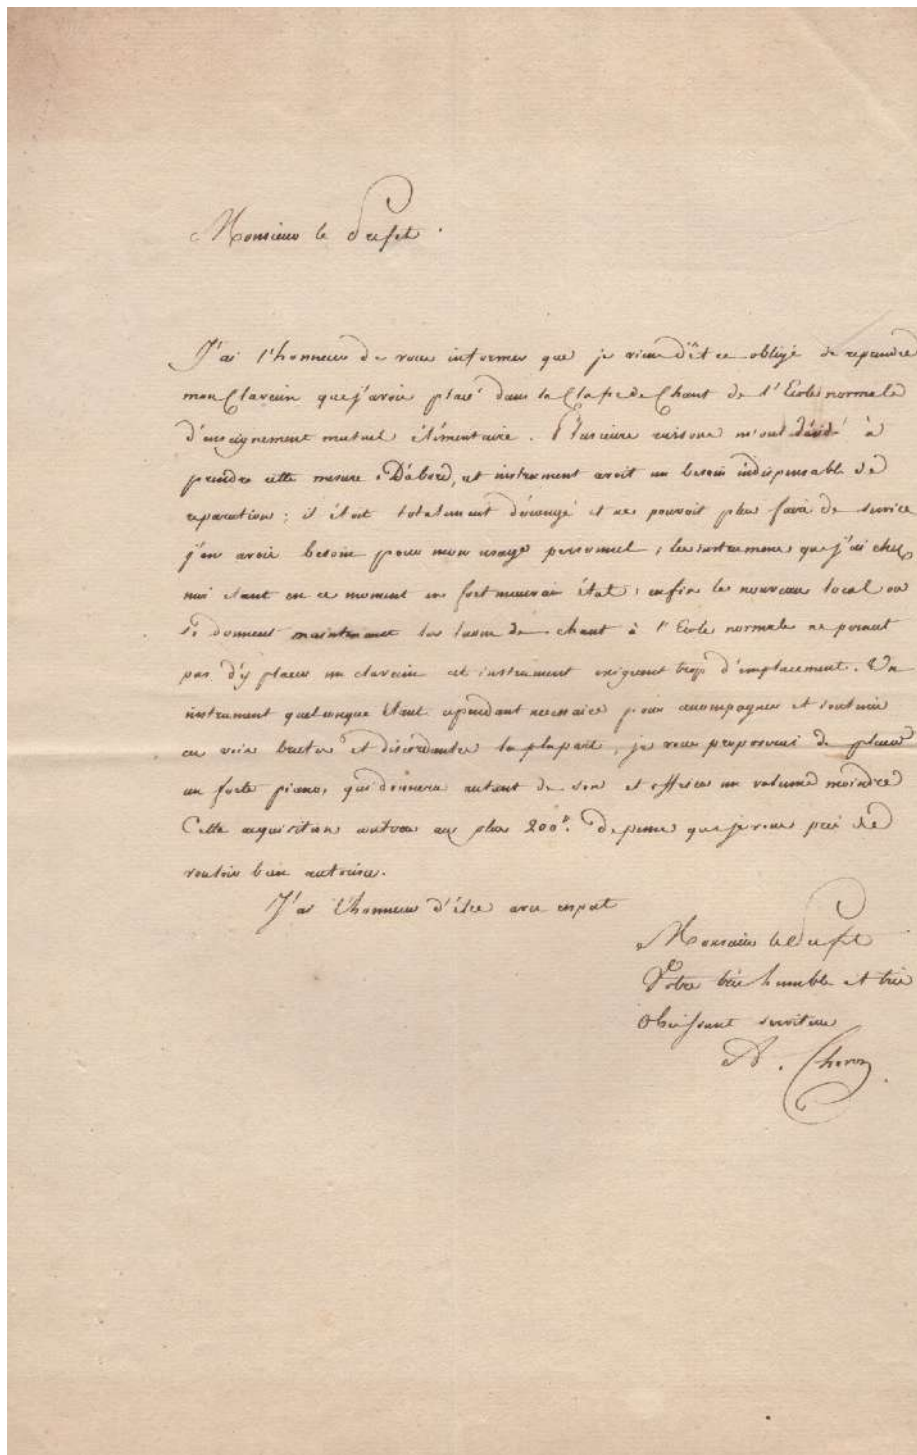 Monsieur le Préfet.
J'ai l'honneur de vous informer que je viens d'être obligé de reprendre
mon Clavecin que j'avois placé dans la Classe de Chant de l'Ecole normale
d'enseignement mutuel élémentaire. Plusieurs raisons m'ont décidé à
prendre cette mesure. D'abord, cet instrument avoit un besoin indispensable de
reparation; il étoit totalement dérangé et ne pouvoit plus faire de service
j'en avois besoin pour mon usage personnel, les instrumens que j'ai chez
moi etant en ce moment en fort mauvais état; enfin le nouveau local où
se donnent maintenant les leçons de chant à l'Ecole normale ne permet
pas d'y placer un clavecin cet instrument exigeant trop d'emplacement. Un
instrument quelconque étant cependant necessaire pour accompagner et soutenir
ces voix brutes et discordantes la plupart, je vous proposerai de placer
un forte piano, qui donnera autant de son et offrira un volume moindre
Cette acquisition coutera au plus 200 depense que je vous prie de
vouloir bien autoriser.
J'ai l'honneur d'être avec respect
Monsieur le Préfet
Votre très humble et très
Obeissant serviteur
A. Choron